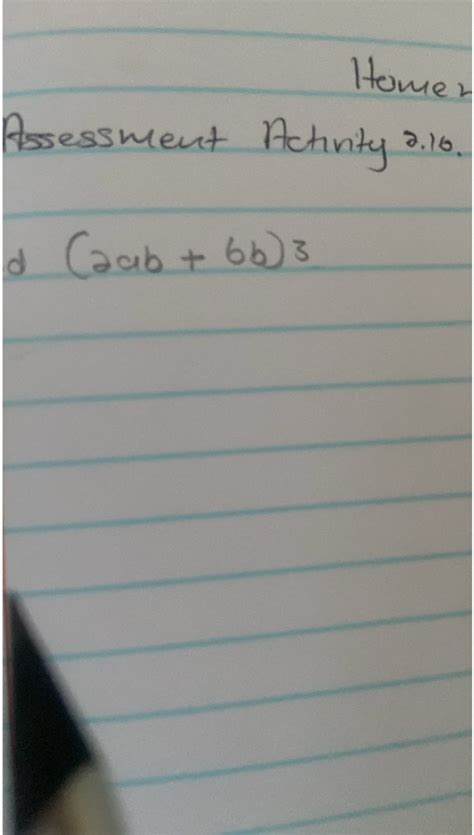 Homew
Assessment Activity 2.16.
d (2ab + 6b)3